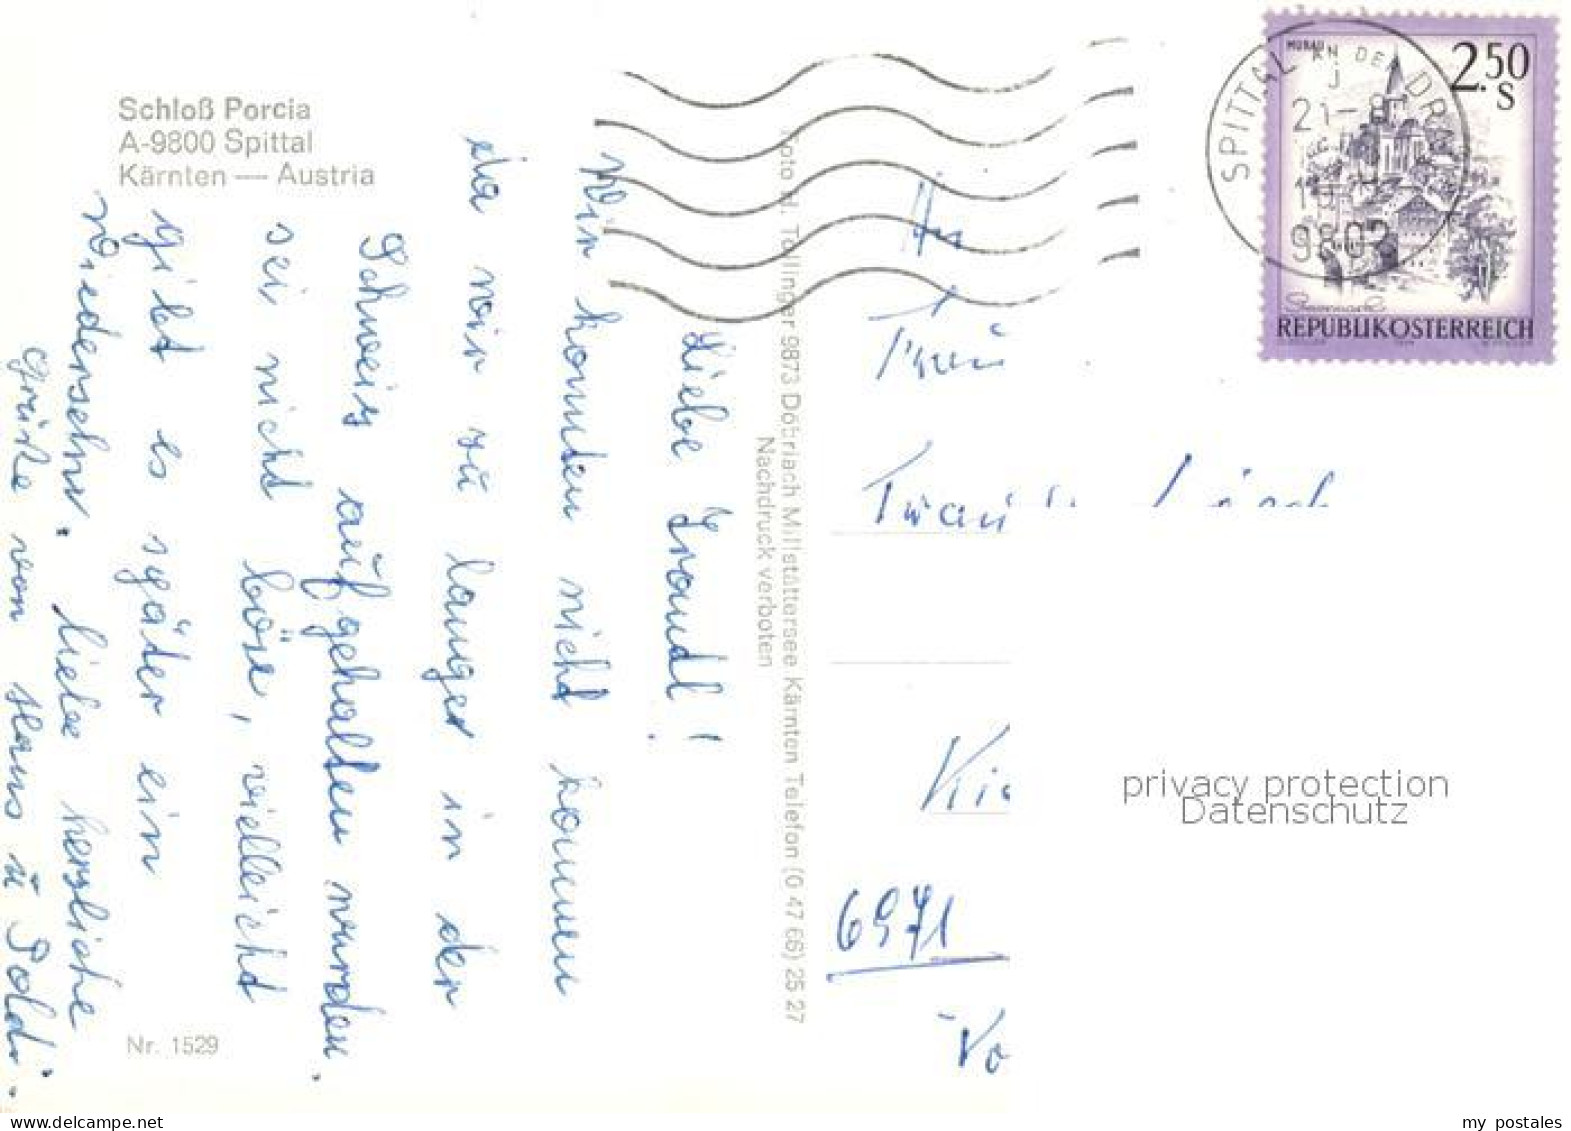 Schloß Porcia
A-9800 Spittal
Kärnten — Austria
Liebe Traudl!
Wir konnten nicht kommen
da wir zu lange in der
Schweiz aufgehalten wurden.
sei nicht böse, vielleicht
gibt es später ein
Wiedersehn. liebe herzliche
Grüße von Hans u Poldi.
Nr. 1529
Foto H. Tollinger 9873 Döbriach Millstättersee Kärnten Telefon (0 47 66) 25 27
Nachdruck verboten
SPITTAL AN DER DRAU
9802
MURAU
2.50
S
Steiermark
REPUBLIK ÖSTERREICH
An
Frau
6971
privacy protection
Datenschutz
my postales
www.delcampe.net